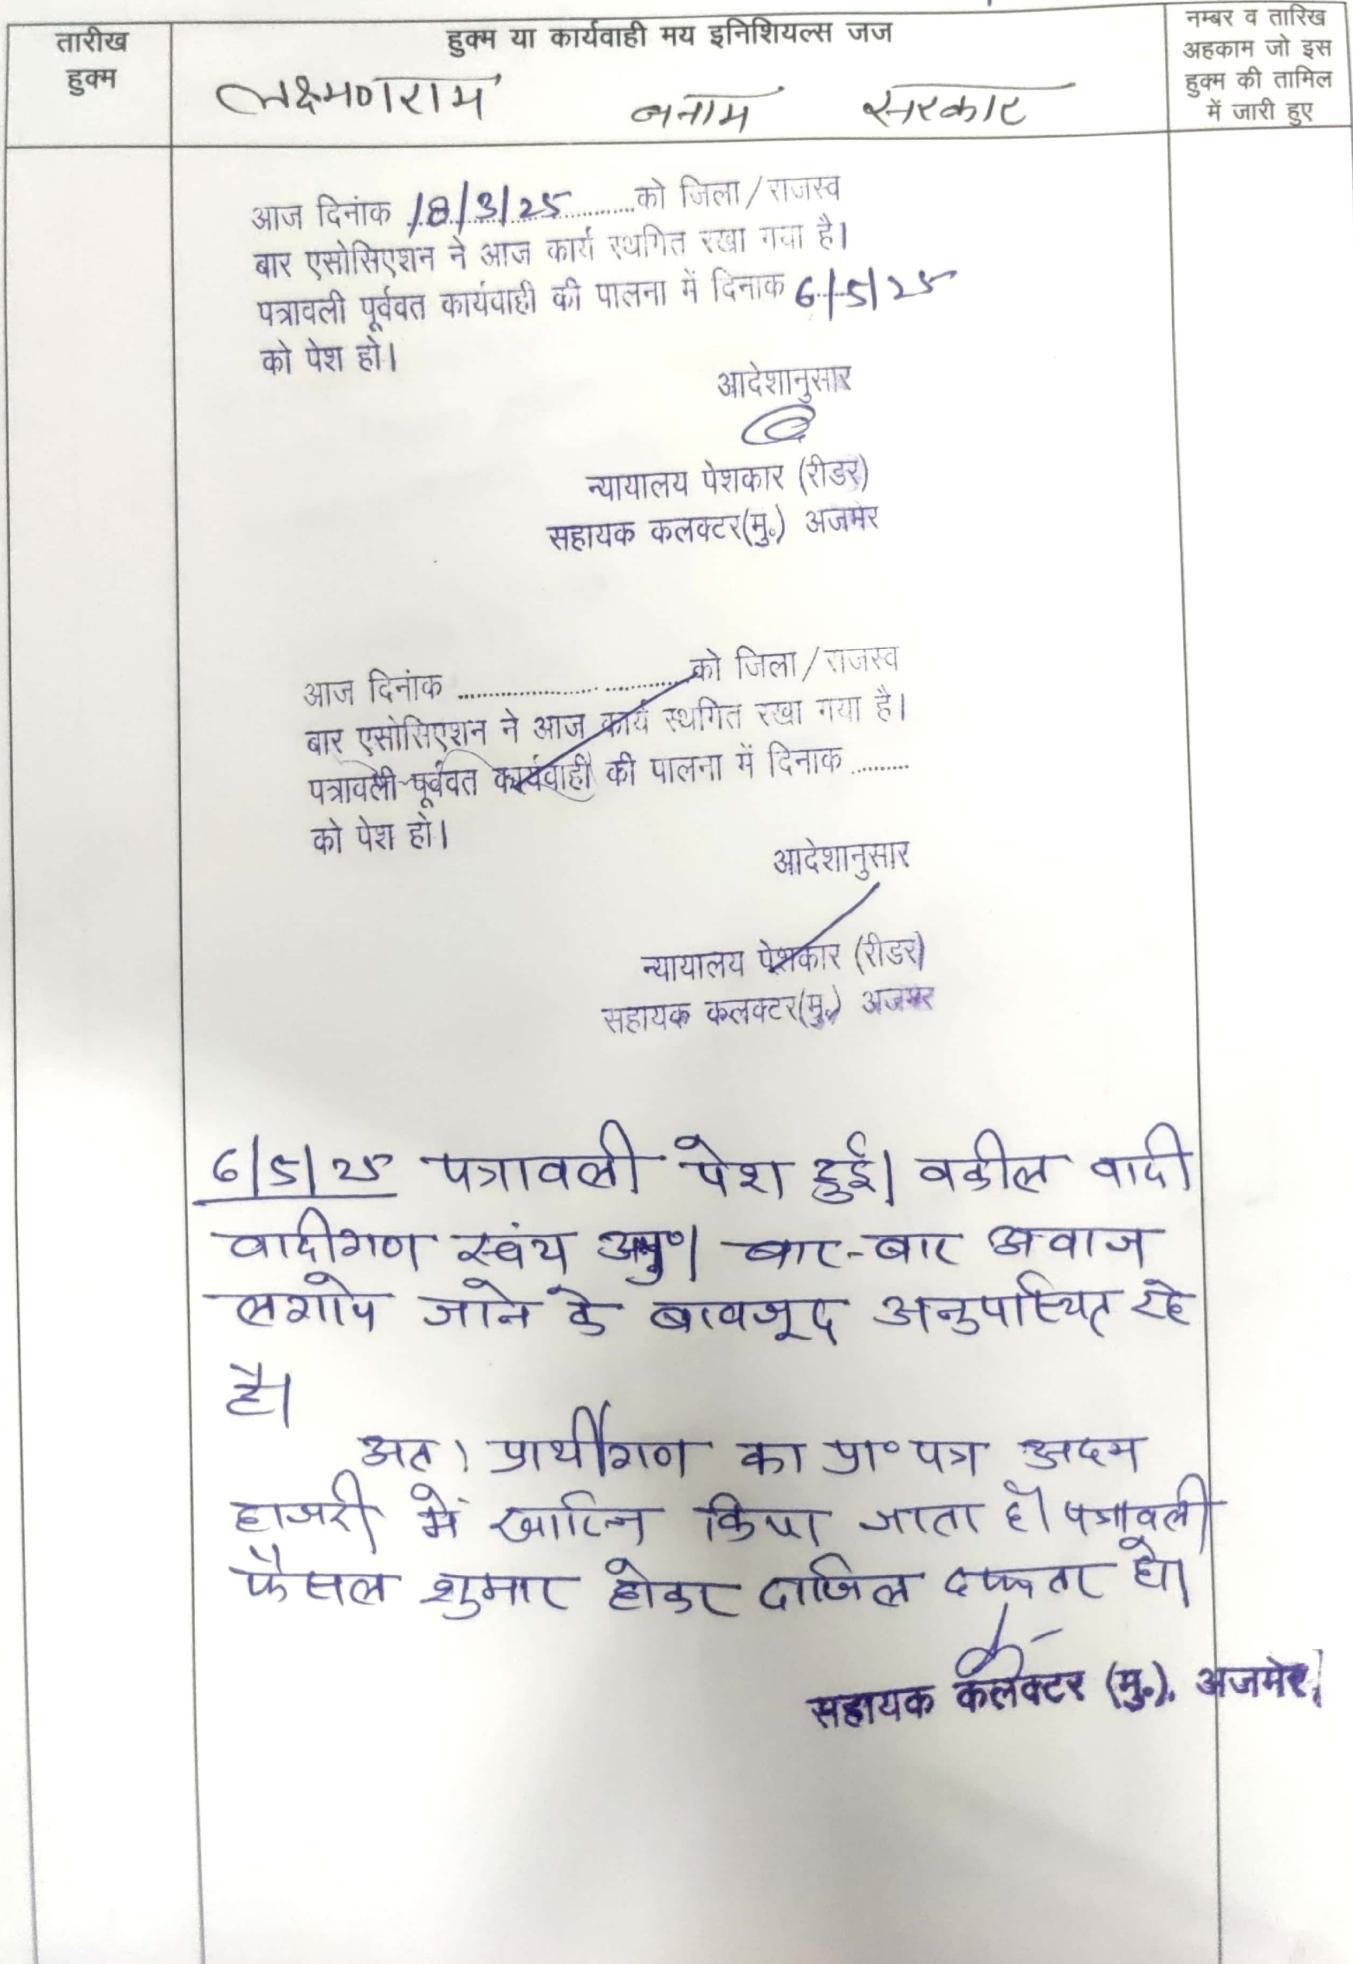 तारीख
हुक्म
हुक्म या कार्यवाही मय इनिशियल्स जज
लक्ष्मणराम बनाम सरकार
नम्बर व तारिख
अहकाम जो इस
हुक्म की तामिल
में जारी हुए
आज दिनांक 18/3/25 को जिला/राजस्व
बार एसोसिएशन ने आज कार्य स्थगित रखा गया है।
पत्रावली पूर्ववत कार्यवाही की पालना में दिनाक 6/5/25
को पेश हो।
आदेशानुसार
न्यायालय पेशकार (रीडर)
सहायक कलक्टर(मु०) अजमेर
आज दिनांक .......................... को जिला/राजस्व
बार एसोसिएशन ने आज कार्य स्थगित रखा गया है।
पत्रावली पूर्ववत कार्यवाही की पालना में दिनाक .........
को पेश हो।
आदेशानुसार
न्यायालय पेशकार (रीडर)
सहायक कलक्टर(मु०) अजमेर
6/5/25 पत्रावली पेश हुई। वकील वादी
वादीगण स्वंय अनु०। बार-बार अवाज
लगाये जाने के बावजूद अनुपस्थित रहे
है।
अतः प्रार्थीगण का प्रा० पत्र अदम
हाजरी में खारिज किया जाता है। पत्रावली
फैसल शुमार होकर दाखिल दफ्तर हो।
सहायक कलेक्टर (मु०). अजमेर